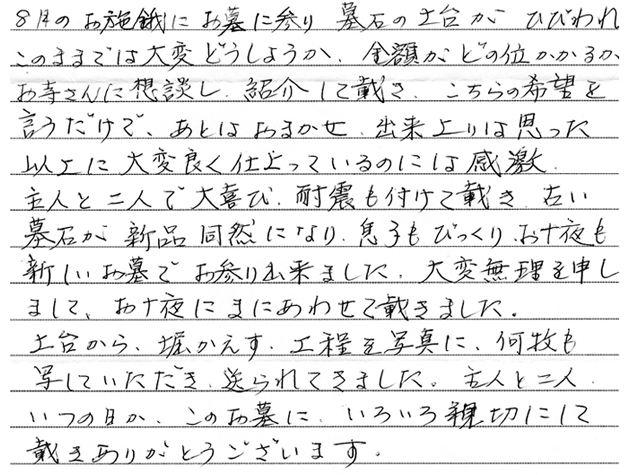 8月のお施餓にお墓に参り 墓石の土台が ひびわれ
このままでは大変どうしようか、金額がどの位かかるか、
お寺さんに想談し、紹介して載き、こちらの希望を
言うだけで、あとはおまかせ、出来上りは思った
以上に大変良く仕上っているのには感激、
主人と二人で大喜び、耐震も付けて載き、古い
墓石が新品同然になり、息子もびっくり、お十夜も
新しいお墓でお参り出来ました、大変無理を申し
まして、お十夜にまにあわせて載きました。
土台から、堀かえす、工程を写真に、何牧も
写していただき、送られてきました。主人と二人、
いつの日か、このお墓に、いろいろ親切にして
載きありがとうございます。